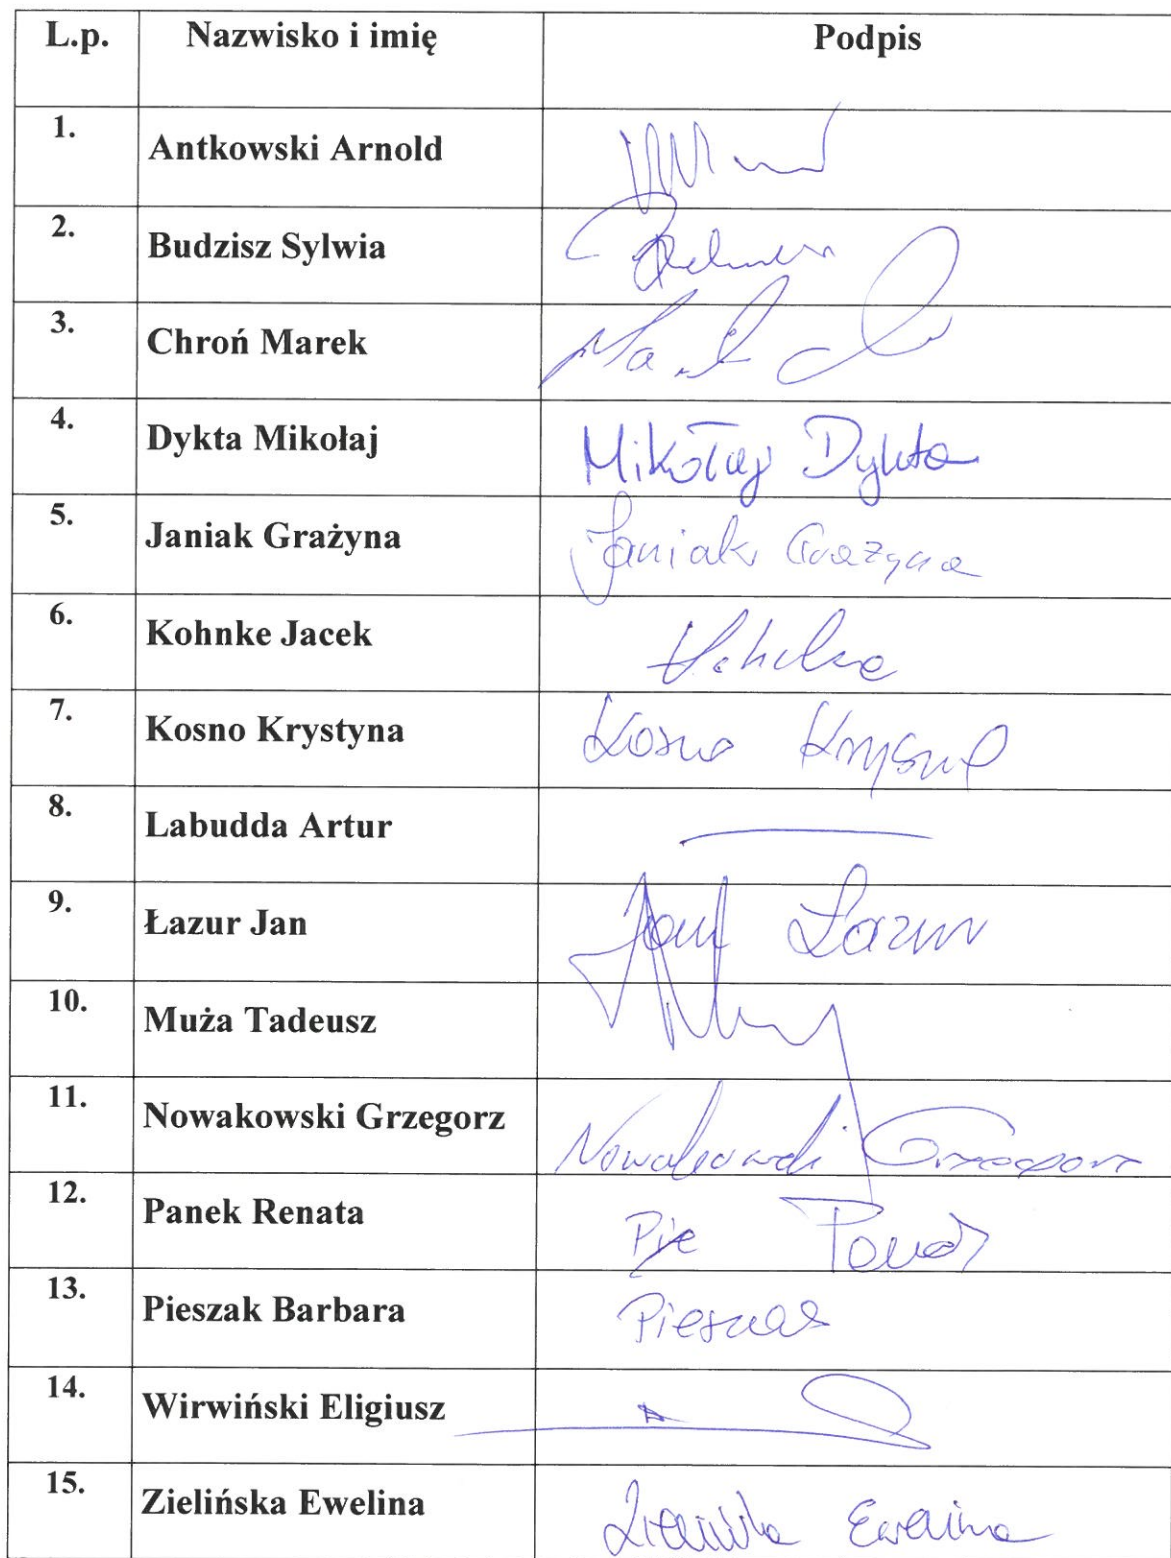 L.p. Nazwisko i imię Podpis
1. Antkowski Arnold
2. Budzisz Sylwia
3. Chroń Marek
4. Dykta Mikołaj Mikołaj Dykta
5. Janiak Grażyna Janiak Grażyna
6. Kohnke Jacek
7. Kosno Krystyna Kosno
8. Labudda Artur
9. Łazur Jan Jan Łazur
10. Muża Tadeusz
11. Nowakowski Grzegorz Nowakowski Grzegorz
12. Panek Renata Panek
13. Pieszak Barbara Pieszak
14. Wirwiński Eligiusz
15. Zielińska Ewelina Zielińska Ewelina